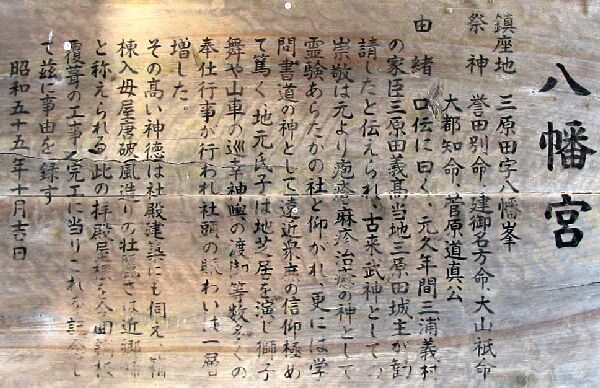 八幡宮
鎮座地　三原田字八幡峯
祭神　誉田別命、建御名方命、大山祇命
大都知命、菅原道真公
由緒　口伝に曰く、元久年間三浦義村
の家臣三原田義髙当地三原田城主が勧
請したと伝えられ、古来武神としての
崇敬は元より疱瘡、麻疹治癒の神として
霊験あらたかの社と仰がれ、更には学
問書道の神として遠近衆庶の信仰極め
て篤く地元氏子は地芝居を演じ獅子
舞や山車の巡幸神輿の渡御等数多くの
奉仕行事が行われ社頭の賑わいは一層
増した。
その高い神徳は社殿建築にも伺え
棟入母屋唐破風造りの壮麗さは近郷
と称えられる此の拝殿屋根を今回
覆葺の工事之完工に当りこれを記念し
て茲に事由を録す
昭和五十五年十月吉日